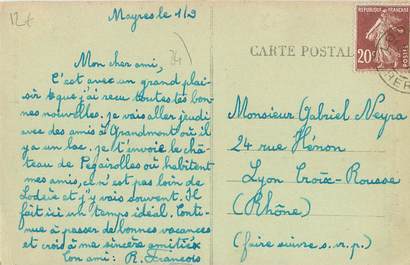 12€
Mayres le 1/9
Mon cher ami,
C'est avec un grand plai-
sir que j'ai reçu toutes tes bon-
nes nouvelles. je vais aller jeudi
avec des amis à Grandmont où il
y a un lac. je t'envoie le châ-
teau de Pégairolles où habitent
mes amis, ce n'est pas loin de
Lodève et j'y vais souvent. Il
fait ici un temps idéal. Conti-
nue à passer de bonnes vacances
et crois à ma sincère amitié
Ton ami: R. François
CARTE POSTALE
REPUBLIQUE FRANÇAISE
20c
POSTES
Monsieur Gabriel Neyra
24 rue Hénon
Lyon Croix-Rousse
(Rhône)
(faire suivre s.v.p.)